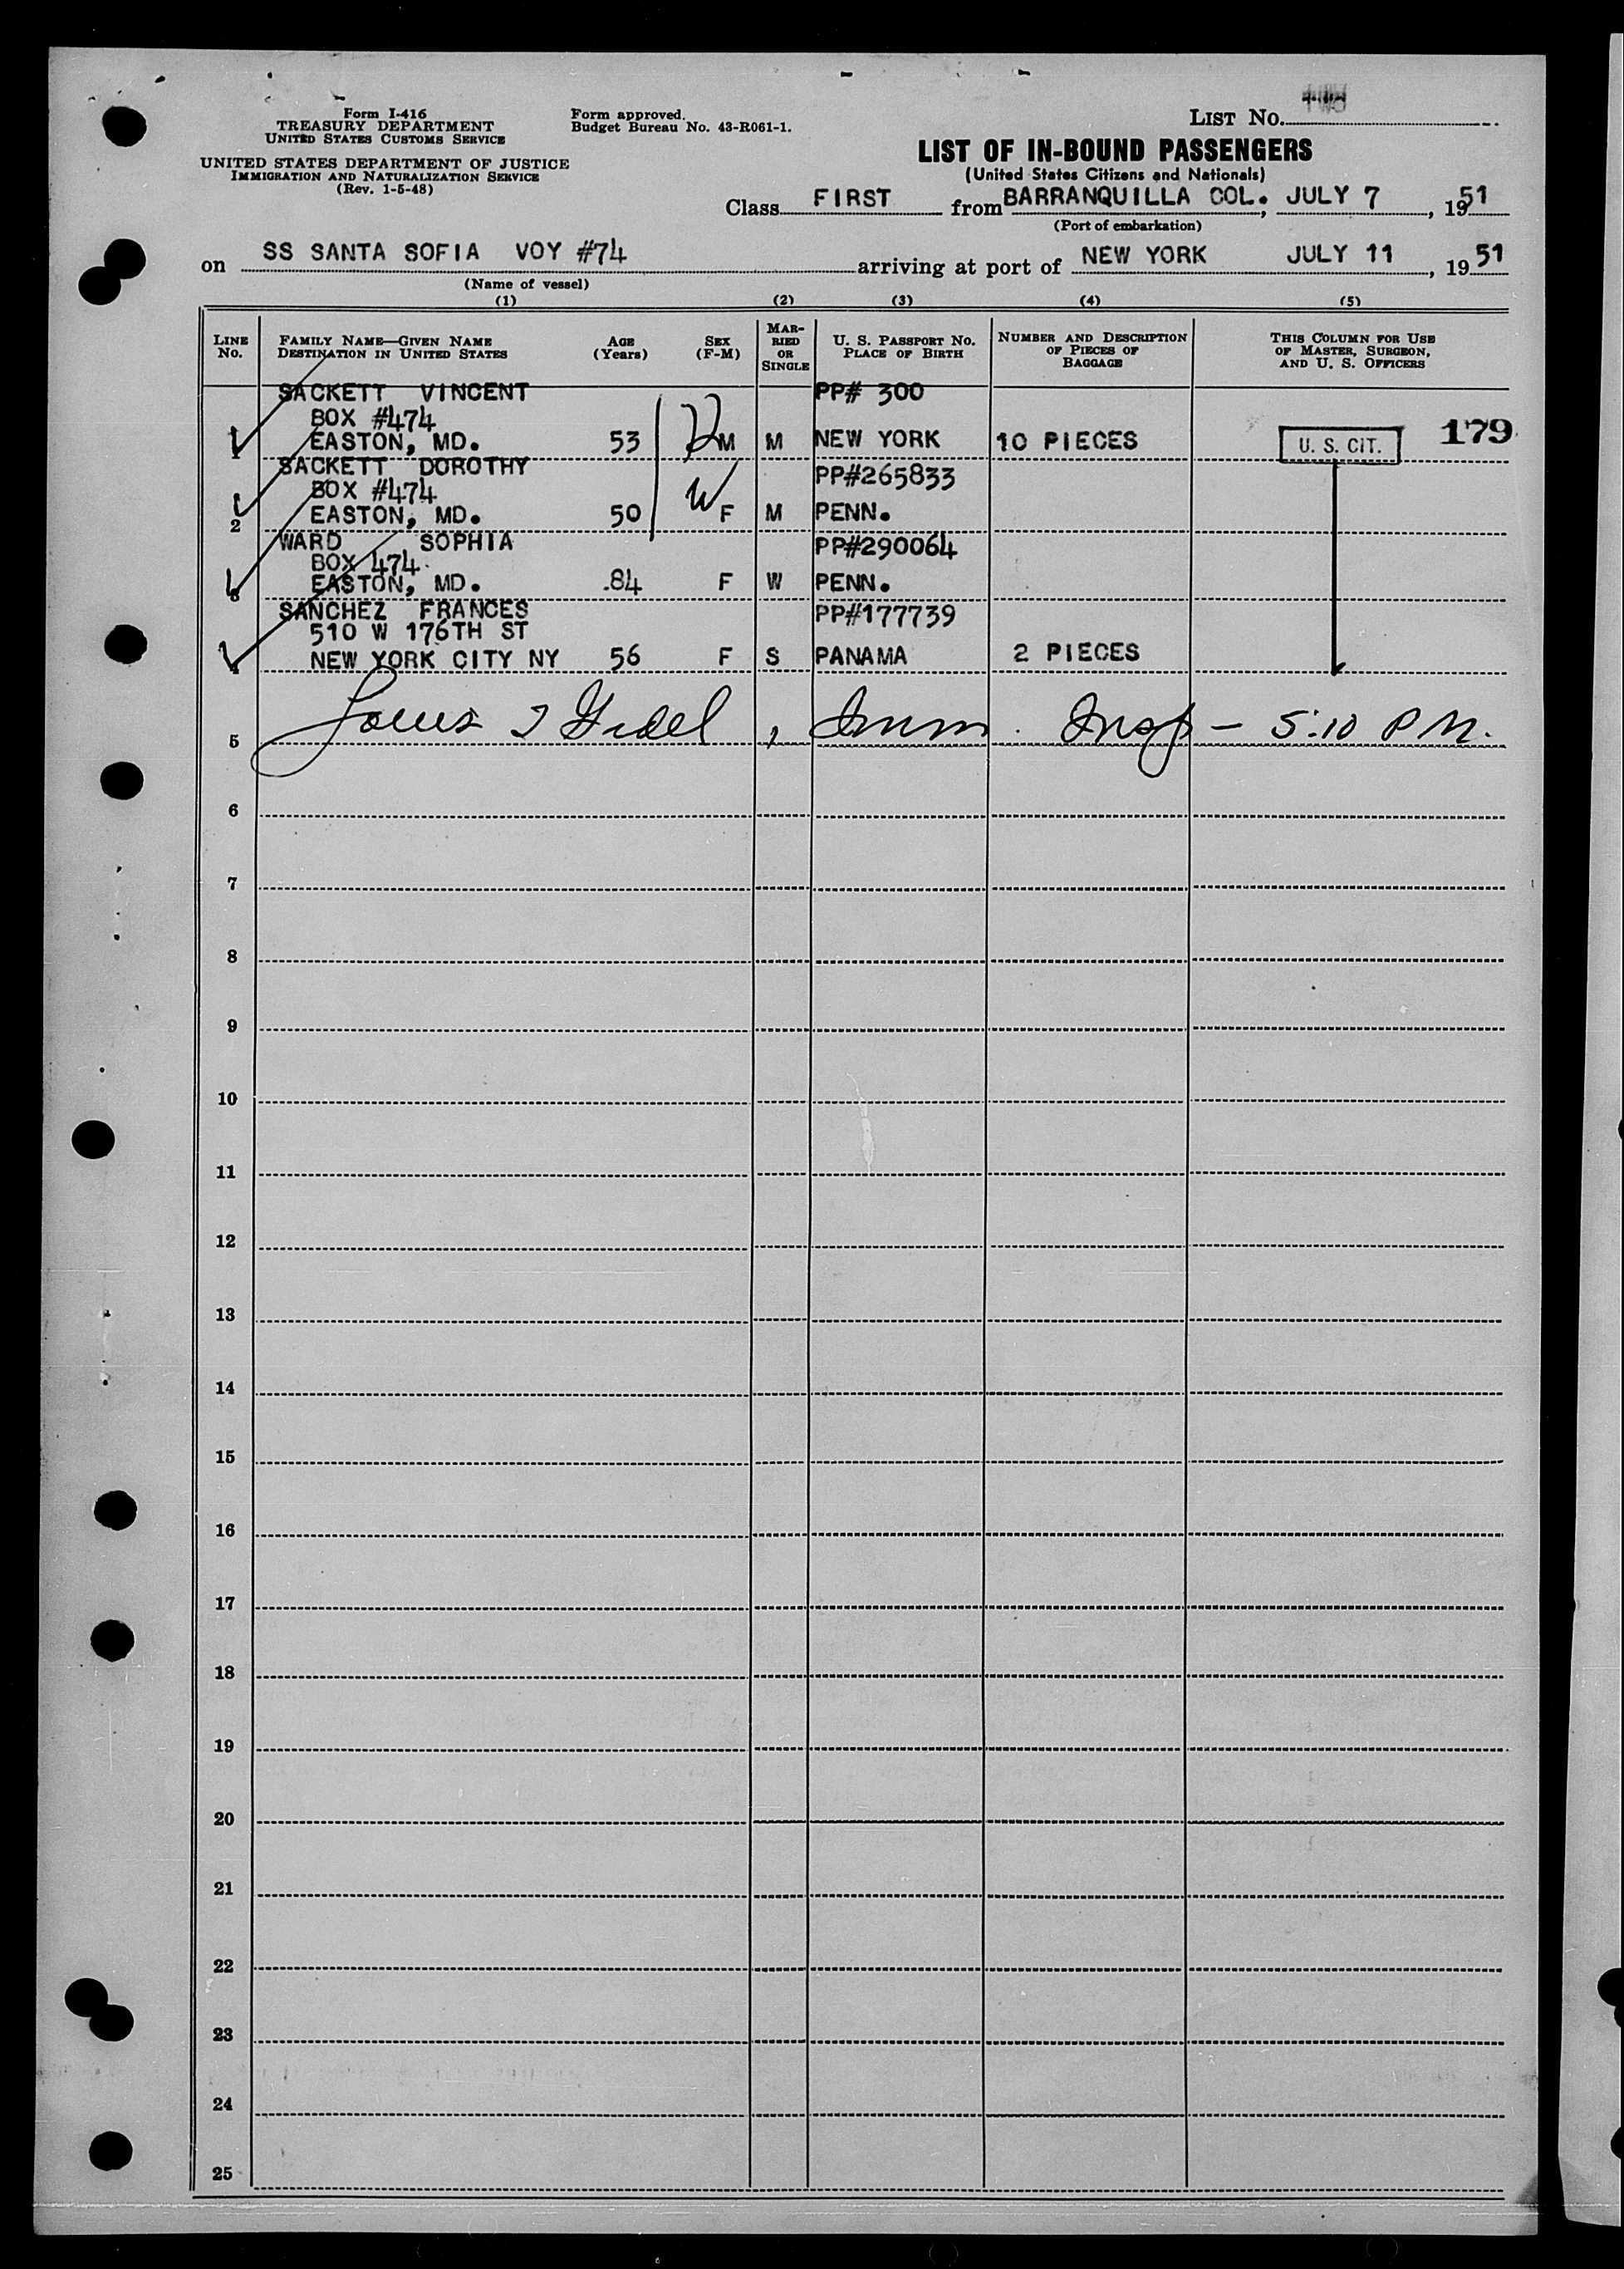 Form I-416
TREASURY DEPARTMENT
UNITED STATES CUSTOMS SERVICE
UNITED STATES DEPARTMENT OF JUSTICE
IMMIGRATION AND NATURALIZATION SERVICE
(Rev. 1-5-48)
Form approved.
Budget Bureau No. 43-R061-1.
LIST No.
LIST OF IN-BOUND PASSENGERS
(United States Citizens and Nationals)
Class FIRST from BARRANQUILLA COL. , JULY 7 , 1951
(Port of embarkation)
on SS SANTA SOFIA VOY #74 arriving at port of NEW YORK JULY 11 , 1951
(Name of vessel)
(1) (2) (3) (4) (5)
LINE No.
FAMILY NAME—GIVEN NAME
DESTINATION IN UNITED STATES
AGE
(Years)
SEX
(F-M)
MAR-
RIED
OR
SINGLE
U. S. PASSPORT NO.
PLACE OF BIRTH
NUMBER AND DESCRIPTION
OF PIECES OF
BAGGAGE
THIS COLUMN FOR USE
OF MASTER, SURGEON,
AND U. S. OFFICERS
SACKETT VINCENT PP# 300
BOX #474
1 EASTON, MD. 53 M M NEW YORK 10 PIECES U. S. CIT. 179
SACKETT DOROTHY PP#265833
BOX #474
2 EASTON, MD. 50 W F M PENN.
WARD SOPHIA PP#290064
BOX 474
3 EASTON, MD. 84 F W PENN.
SANCHEZ FRANCES PP#177739
510 W 176TH ST
4 NEW YORK CITY NY 56 F S PANAMA 2 PIECES
5 Louis I , Imm. Insp - 5:10 P M.
6
7
8
9
10
11
12
13
14
15
16
17
18
19
20
21
22
23
24
25